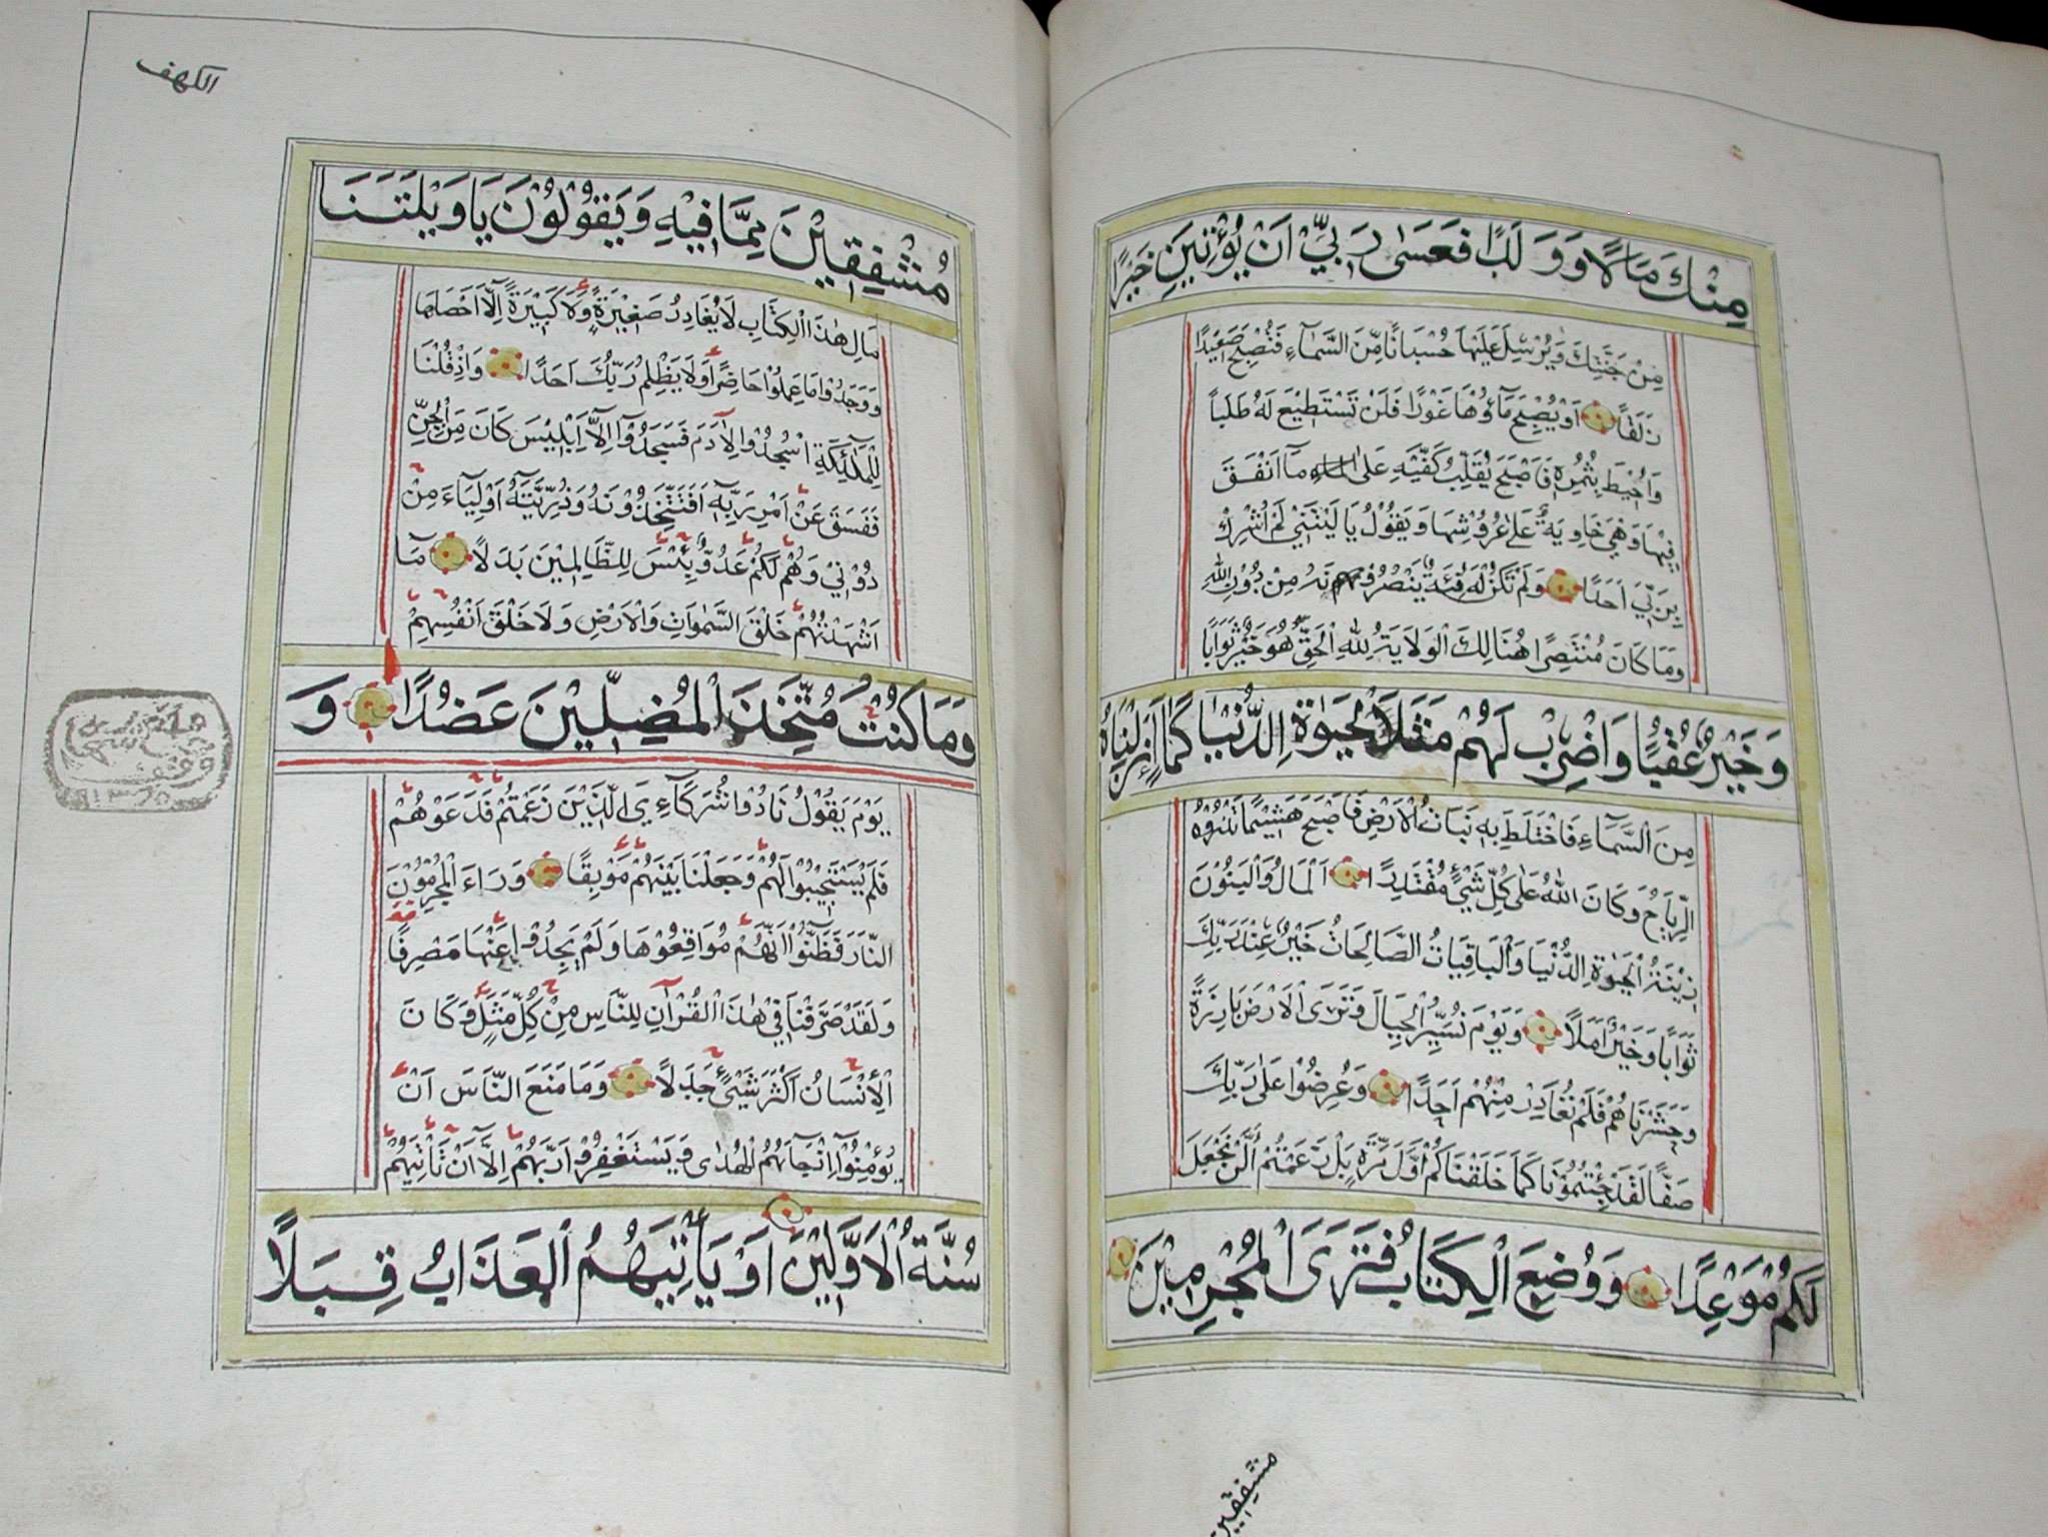 مِنْكَ مَالًا وَوَلَدًا فَعَسٰى رَبِّيْ اَنْ يُؤْتِيَنِ خَيْرًا
مِنْ جَنَّتِكَ وَيُرْسِلَ عَلَيْهَا حُسْبَانًا مِّنَ السَّمَآءِ فَتُصْبِحَ صَعِيْدًا
زَلَقًا اَوْ يُصْبِحَ مَآؤُهَا غَوْرًا فَلَنْ تَسْتَطِيْعَ لَهُ طَلَبًا
وَاُحِيْطَ بِثُمُرِهٖ فَاَصْبَحَ يُقَلِّبُ كَفَّيْهِ عَلٰى مَآ اَنْفَقَ
فِيْهَا وَهِيَ خَاوِيَةٌ عَلٰى عُرُوْشِهَا وَيَقُوْلُ يَا لَيْتَنِيْ لَمْ اُشْرِكْ
بِرَبِّيْ اَحَدًا وَلَمْ تَكُنْ لَهُ فِئَةٌ يَنْصُرُوْنَهُ مِنْ دُوْنِ اللّٰهِ
وَمَا كَانَ مُنْتَصِرًا هُنَالِكَ الْوَلَايَةُ لِلّٰهِ الْحَقِّ هُوَ خَيْرٌ ثَوَابًا
وَخَيْرٌ عُقْبًا وَاضْرِبْ لَهُمْ مَثَلَ الْحَيٰوةِ الدُّنْيَا كَمَآءٍ اَنْزَلْنَاهُ
مِنَ السَّمَآءِ فَاخْتَلَطَ بِهٖ نَبَاتُ الْاَرْضِ فَاَصْبَحَ هَشِيْمًا تَذْرُوْهُ
الرِّيَاحُ وَكَانَ اللّٰهُ عَلٰى كُلِّ شَيْءٍ مُقْتَدِرًا اَلْمَالُ وَالْبَنُوْنَ
زِيْنَةُ الْحَيٰوةِ الدُّنْيَا وَالْبَاقِيَاتُ الصَّالِحَاتُ خَيْرٌ عِنْدَ رَبِّكَ
ثَوَابًا وَخَيْرٌ اَمَلًا وَيَوْمَ نُسَيِّرُ الْجِبَالَ وَتَرَى الْاَرْضَ بَارِزَةً
وَحَشَرْنَاهُمْ فَلَمْ نُغَادِرْ مِنْهُمْ اَحَدًا وَعُرِضُوْا عَلٰى رَبِّكَ
صَفًّا لَقَدْ جِئْتُمُوْنَا كَمَا خَلَقْنَاكُمْ اَوَّلَ مَرَّةٍ بَلْ زَعَمْتُمْ اَلَّنْ نَجْعَلَ
لَكُمْ مَوْعِدًا وَوُضِعَ الْكِتَابُ فَتَرَى الْمُجْرِمِيْنَ
مشفقين
الكهف
مُشْفِقِيْنَ مِمَّا فِيْهِ وَيَقُوْلُوْنَ يَا وَيْلَتَنَا
مَالِ هٰذَا الْكِتَابِ لَا يُغَادِرُ صَغِيْرَةً وَلَا كَبِيْرَةً اِلَّا اَحْصَاهَا
وَوَجَدُوْا مَا عَمِلُوْا حَاضِرًا وَلَا يَظْلِمُ رَبُّكَ اَحَدًا وَاِذْ قُلْنَا
لِلْمَلٰٓئِكَةِ اسْجُدُوْا لِاٰدَمَ فَسَجَدُوْٓا اِلَّآ اِبْلِيْسَ كَانَ مِنَ الْجِنِّ
فَفَسَقَ عَنْ اَمْرِ رَبِّهٖ اَفَتَتَّخِذُوْنَهُ وَذُرِّيَّتَهُ اَوْلِيَآءَ مِنْ
دُوْنِيْ وَهُمْ لَكُمْ عَدُوٌّ بِئْسَ لِلظَّالِمِيْنَ بَدَلًا مَآ
اَشْهَدْتُهُمْ خَلْقَ السَّمٰوَاتِ وَالْاَرْضِ وَلَا خَلْقَ اَنْفُسِهِمْ
وَمَا كُنْتُ مُتَّخِذَ الْمُضِلِّيْنَ عَضُدًا وَ
يَوْمَ يَقُوْلُ نَادُوْا شُرَكَآءِيَ الَّذِيْنَ زَعَمْتُمْ فَدَعَوْهُمْ
فَلَمْ يَسْتَجِيْبُوْا لَهُمْ وَجَعَلْنَا بَيْنَهُمْ مَوْبِقًا وَرَاَءَ الْمُجْرِمُوْنَ
النَّارَ فَظَنُّوْٓا اَنَّهُمْ مُوَاقِعُوْهَا وَلَمْ يَجِدُوْا عَنْهَا مَصْرِفًا
وَلَقَدْ صَرَّفْنَا فِيْ هٰذَا الْقُرْاٰنِ لِلنَّاسِ مِنْ كُلِّ مَثَلٍ وَكَانَ
الْاِنْسَانُ اَكْثَرَ شَيْءٍ جَدَلًا وَمَا مَنَعَ النَّاسَ اَنْ
يُؤْمِنُوْٓا اِذْ جَآءَهُمُ الْهُدٰى وَيَسْتَغْفِرُوْا رَبَّهُمْ اِلَّآ اَنْ تَأْتِيَهُمْ
سُنَّةُ الْاَوَّلِيْنَ اَوْ يَأْتِيَهُمُ الْعَذَابُ قِبَلًا